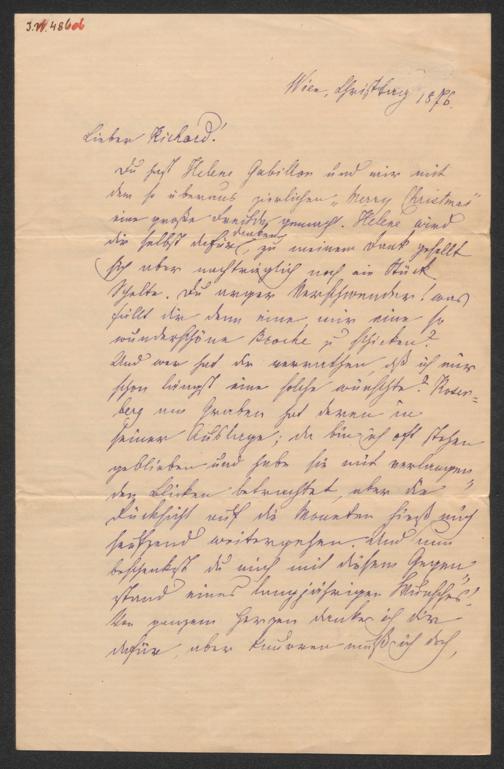 J.N. 48606
Wien, Christtag 1876.
Lieber Richard!
Du hast Helene Gabillon und mir mit
dem so überaus zierlichen „Merry Christmas"
eine große Freude gemacht. Helene wird
dir selbst dafür danken, zu meinem Dank gesellt
sich aber nachträglich noch ein Stück
Schelte. Du arger Verschwender! was
fällt dir denn ein, mir eine so
wunderschöne Broche zu schicken?
Und wer hat dir verrathen, daß ich mir
schon längst eine solche wünschte? Rosen=
berg am Graben hat deren in
seiner Auslage; da bin ich oft stehen
geblieben und habe sie mit verlangen=
den Blicken betrachtet, aber die
Rücksicht auf die Moneten hieß mich
seufzend weitergehen. Und nun
beschenkst du mich mit diesem Gegen=
stand eines langjährigen Wunsches!
Von ganzem Herzen danke ich dir
dafür, aber knurren muß ich doch,